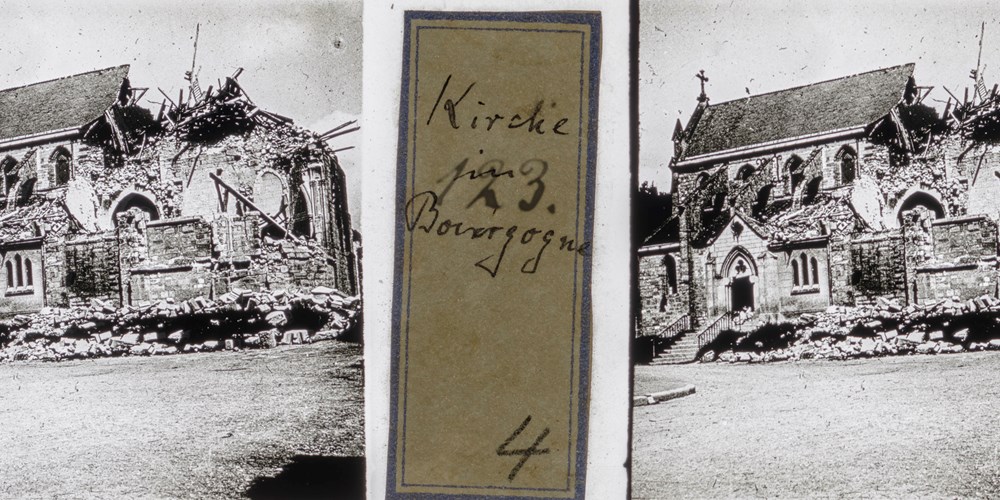 Kirche
in
123.
Bourgogne
4